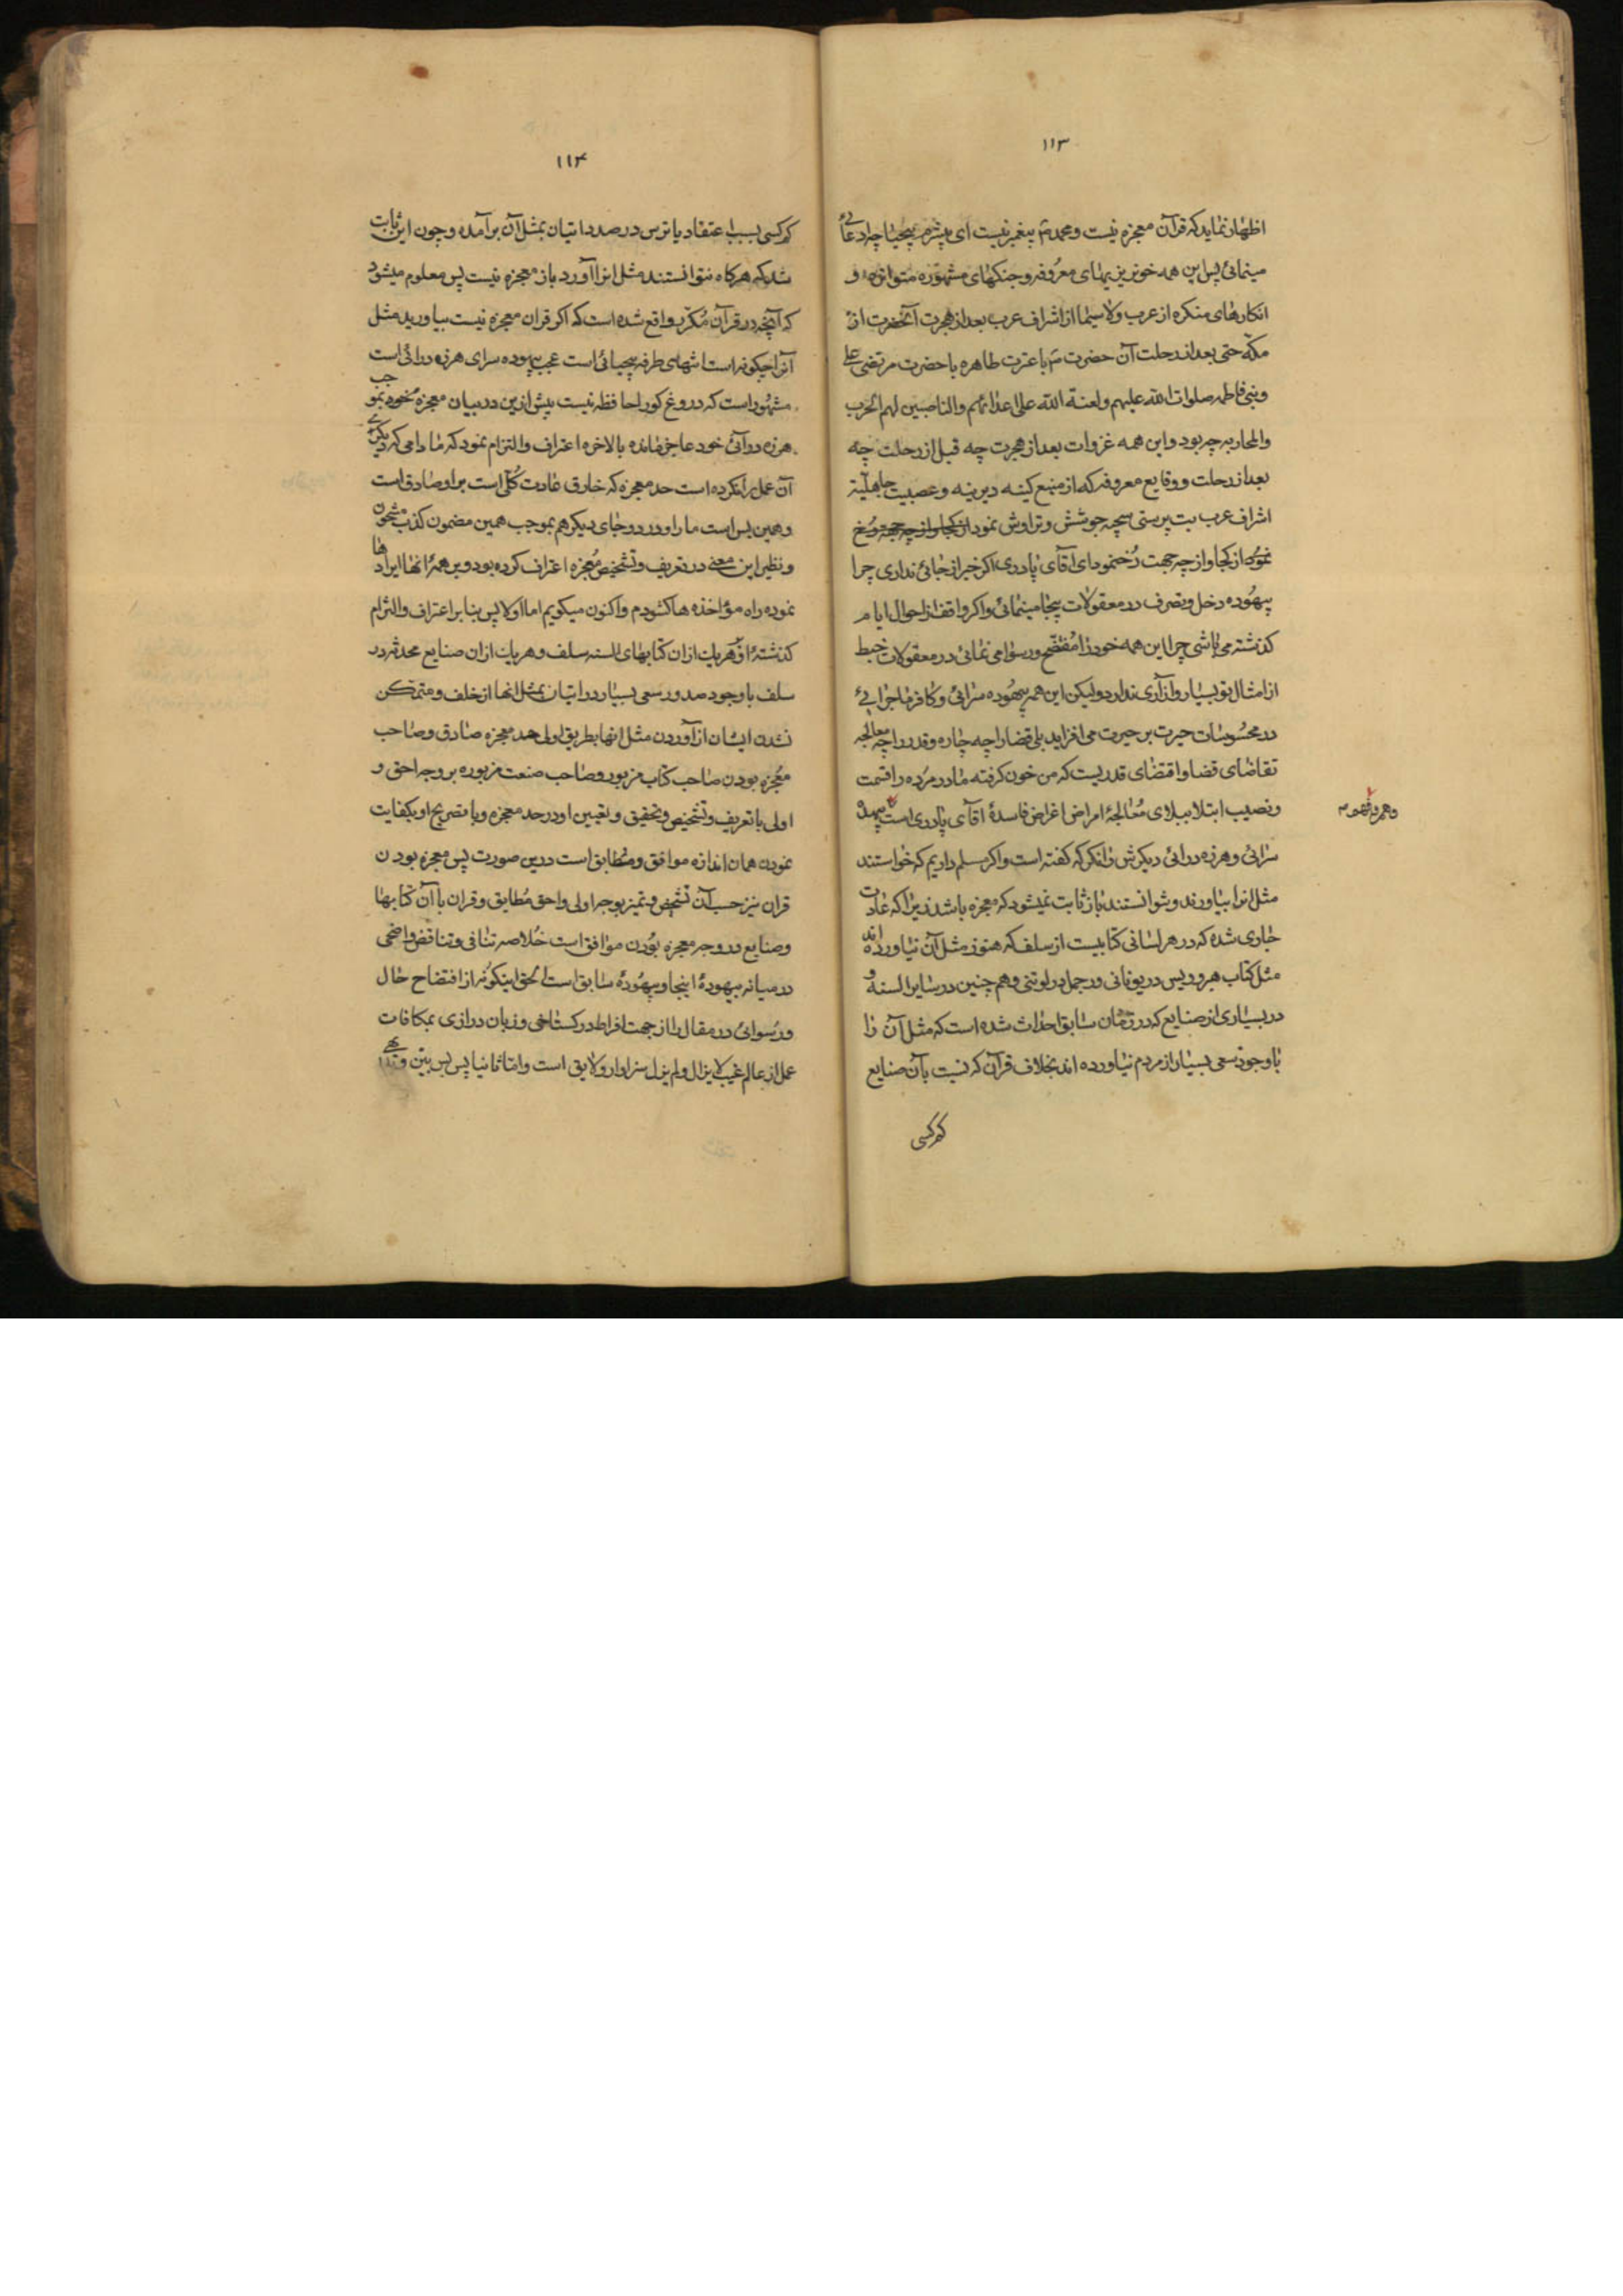 ۱۱۳
اظهار نماید که قرآن معجزه نیست و محمد ص پیغمبر نیست ای بیشرم بیحیا چه ادعائی
مینمائی پس این همه خونریزیهای معروفه و جنکهای مشهوره متواتره و
انکارهای منکره از عرب ولاسیما از اشراف عرب بعد از هجرت آنحضرت از
مکه حتی بعد از رحلت آن حضرت ص با عترت طاهره با حضرت مرتضی علی
و بنی فاطمه صلوات الله علیهم ولعنة الله علی اعدائهم والناصبین لهم الحرب
والمحاربه چه بود و این همه غزوات بعد از هجرت چه قبل از رحلت چه
بعد از رحلت و وقایع معروفه که از منبع کینه دیرینه و عصبیت جاهلیة
اشراف عرب بت پرستی سچیه جوشش و تراوش نمود از کجا و از چه جهت رخ
نمود از کجا و از چه جهت رخ نمود ای آقای پادری اکر خبر از جائی نداری چرا
بیهوده دخل و تصرف در معقولات بیجا مینمائی و اکر واقف از احوال ایام
کذشته می باشی چرا این همه خود را مفتضح و رسوا می نمائی در معقولات خبط
از امثال تو بسیار و از آری ندارد ولیکن این همه بیهوده سرائی و کافر ماجرایی
در محسوسات حیرت بر حیرت می افزاید بلی قضا را چه چاره و قدر را چه معالجه
تقاضای قضا و اقتضای قدریست که من خون کرفته مادر مرده را قسمت
و نصیب ابتلا ببلای معالجهٔ امراض اغراض فاسدهٔ آقای پادری است بیهده
سرائی و هرزه درائی دیکرش را نکر که کفته است و اکر مسلم داریم که خواستند
مثل انرا بیاورند و نتوانستند باز ثابت نمیشود که معجزه باشد زیرا که عادت
جاری شده که در هر لسانی کتابیست از سلف که هنوز مثل آن نیاورده اند
مثل کتاب هرودیس در یونانی و رجمل در لوتنی و هم چنین در سایر السنه و
در بسیاری از صنایع که در زمان سابق احداث شده است که مثل آن را
با وجود سعی بسیار از مردم نیاورده اند بخلاف قرآن که نسبت بآن صنایع
کم کسی
۱۱۴
کم کسی بسبب اعتقاد یا ترس در صدد اتیان بمثل آن برآمده و چون این ثابت
شد که هرکاه نتوانستند مثل انرا آورد باز معجزه نیست پس معلوم میشود
که آنچه در قرآن مکرر واقع شده است که اکر قران معجزه نیست بیاورید مثل
آنرا چکونه است انتهای طرفه بیحیائی است عجب بیهوده سرای هرزه درائی است
مشهور است که دروغ کو را حافظه نیست پیش ازین در بیان معجزه خود بموجب
هرزه درآئی خود عاجز مانده بالاخره اعتراف والتزام نمود که مادامی که دیکری
آن عمل را نکرده است حد معجزه که خارق عادت کلی است بر او صادق است
و همین بس است ما را و در دو جای دیکر هم بموجب همین مضمون کذب مشحون
و نظیر این معنی در تعریف و تشخیص معجزه اعتراف کرده بود و بر همهٔ انها ایراد ها
نموده راه مؤاخذه ها کشودم و اکنون میکویم اما اولا پس بنا بر اعتراف والتزام
کذشتهٔ او هر یک از ان کتابهای السنه سلف و هر یک از ان صنایع محدثه در
سلف با وجود صدور سعی بسیار در اتیان بمثل انها از خلف و متمکن
نشدن ایشان از آوردن مثل انها بطریق اولی حد معجزه صادق و صاحب
معجزه بودن صاحب کتاب مزبور و صاحب صنعت مزبوره بر وجه احق و
اولی با تعریف و تشخیص و تحقیق و تعیین او در حد معجزه و با تصریح او بکفایت
نمودن همان اندازه موافق و مطابق است درین صورت پس معجزه بودن
قران نیز حسب آن تشخص و تمیز بوجه اولی و احق مطابق و قران با آن کتابها
و صنایع در وجه معجزه بودن موافق است خلاصه تنافی و تناقض واضحی
در میانه بیهودهٔ اینجا و بیهودهٔ سابق است الحق اینکونه از افتضاح حال
و رسوائی در مقال را از جهت افراط در کستاخی و زبان درازی بمکافات
عمل از عالم غیب لا یزال ولم یزل سزاوار و لایق است و اما ثانیا پس بر بیّن و